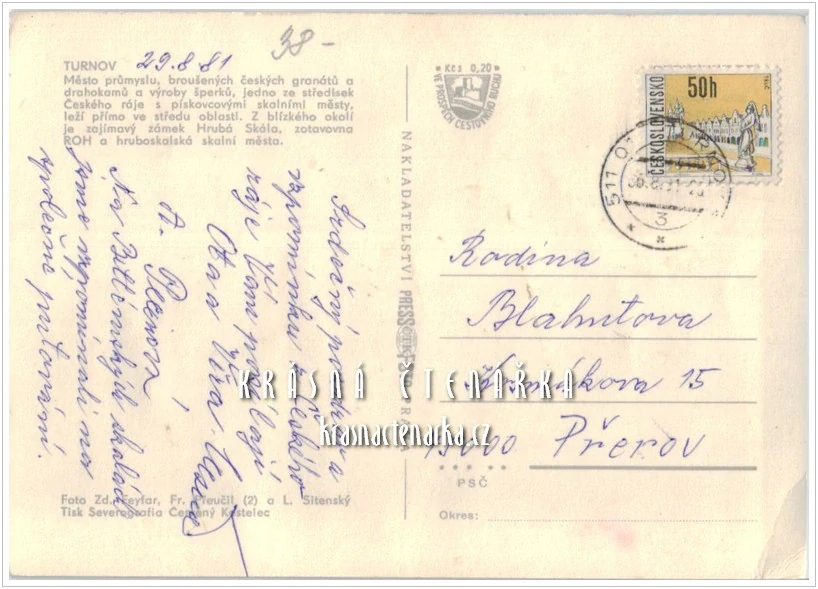 TURNOV 29.8.81
38-
Město průmyslu, broušených českých granátů a
drahokamů a výroby šperků, jedno ze středisek
Českého ráje s pískovcovými skalními městy,
leží přímo ve středu oblasti. Z blízkého okolí
je zajímavý zámek Hrubá Skála, zotavovna
ROH a hruboskalská skalní města.
Kčs 0,20
VE PROSPĚCH CESTOVNÍHO RUCHU
ČESKOSLOVENSKO
50h
511 01 TURNOV
3
Srdečný pozdrav a
vzpomínku z Českého
ráje Vám posílají
Ota a Věra
Na Betlémských skalách
jsme vzpomínali na
společné putování.
NAKLADATELSTVÍ PRESSFOTO PRAHA
Rodina
Blahutova
15
Přerov
PSČ
Okres:
KRÁSNÁ ČTENÁŘKA
krasnactenarka.cz
Foto Zd. Feyfar, Fr. Přeučil (2) a L. Sitenský
Tisk Severografia Červený Kostelec